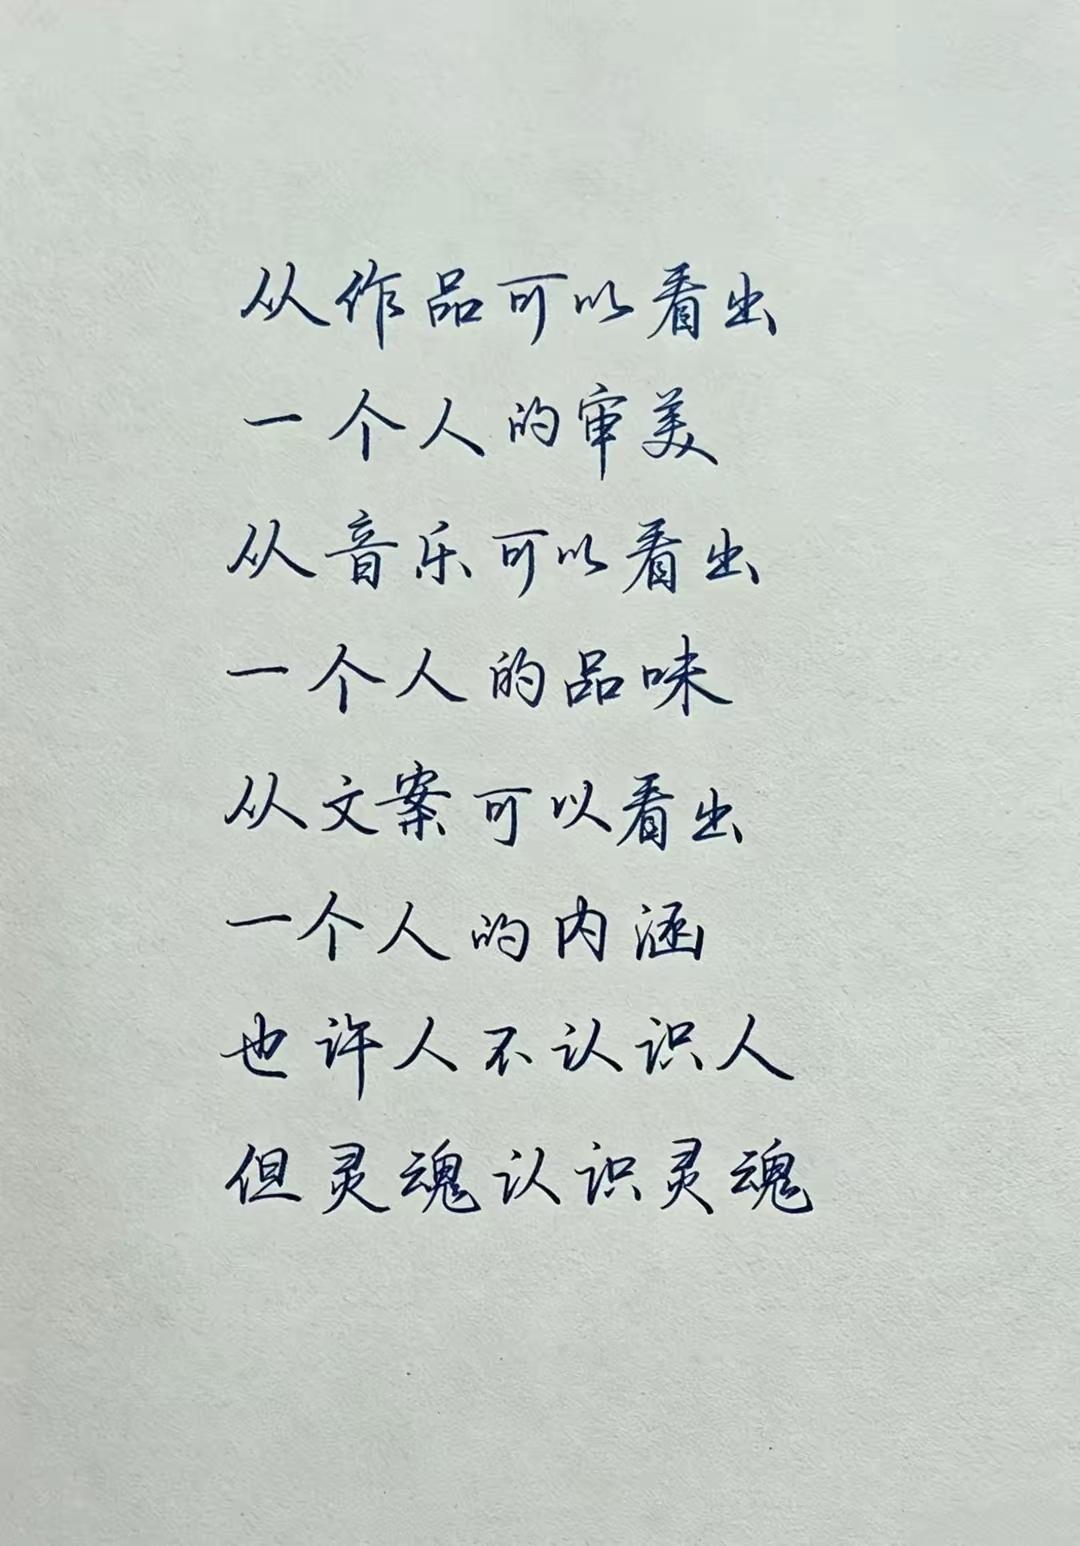 从作品可以看出
一个人的审美
从音乐可以看出
一个人的品味
从文案可以看出
一个人的内涵
也许人不认识人
但灵魂认识灵魂